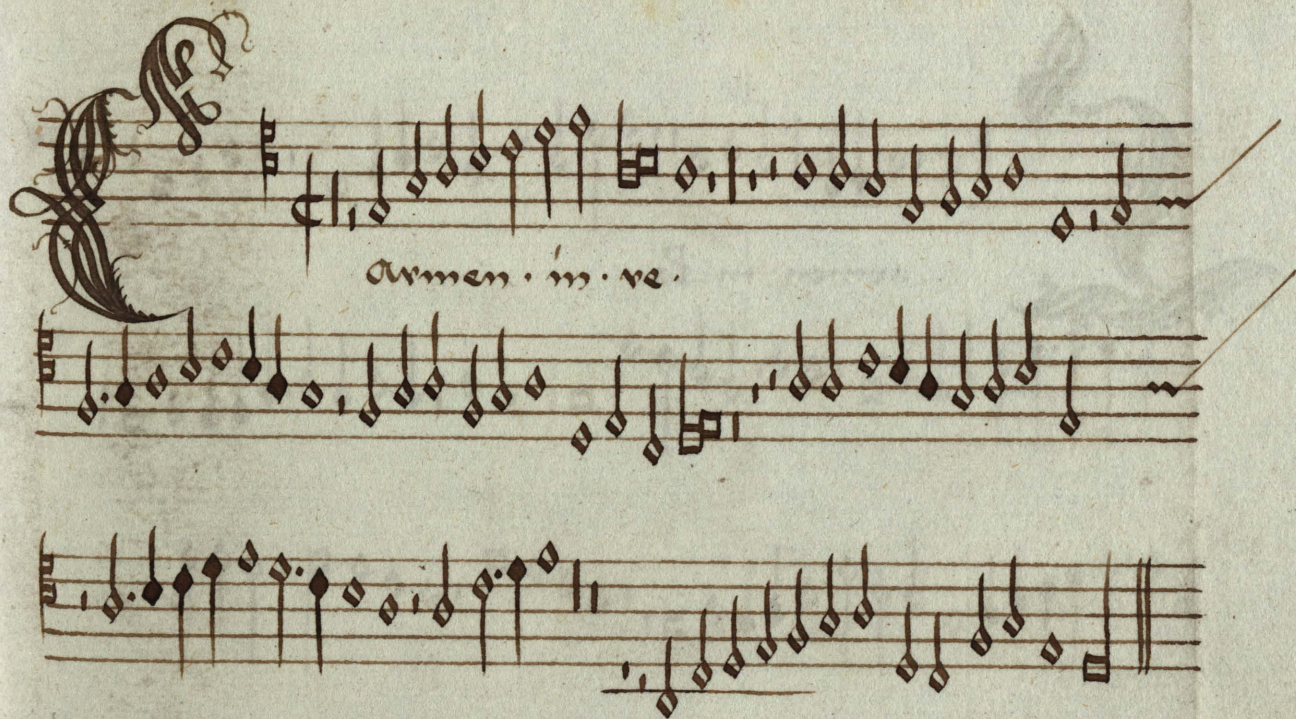 Carmen · in · re ·